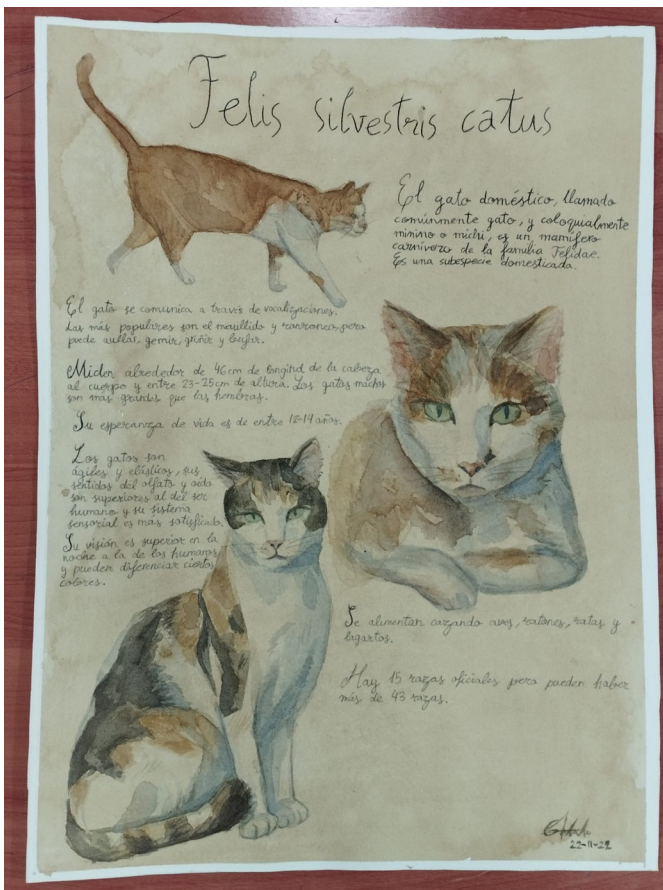 Felis silvestris catus
El gato doméstico, llamado
comúnmente gato, y coloquialmente
minino o michi, es un mamífero
carnívoro de la familia Felidae.
Es una subespecie domesticada.
El gato se comunica a través de vocalizaciones.
Las más populares son el maullido y ronroneo, pero
puede aullar, gemir, gruñir y bufar.
Miden alrededor de 46cm de longitud de la cabeza
al cuerpo y entre 23-25cm de altura. Los gatos machos
son más grandes que las hembras.
Su esperanza de vida es de entre 12-14 años.
Los gatos son
ágiles y elásticos, sus
sentidos del olfato y oído
son superiores al del ser
humano y su sistema
sensorial es mas sotisficado.
Su visión es superior en la
noche a la de los humanos
y pueden diferenciar ciertos
colores.
Se alimentan cazando aves, ratones, ratas y
lagartos.
Hay 15 razas oficiales pero pueden haber
más de 43 razas.
22-11-22